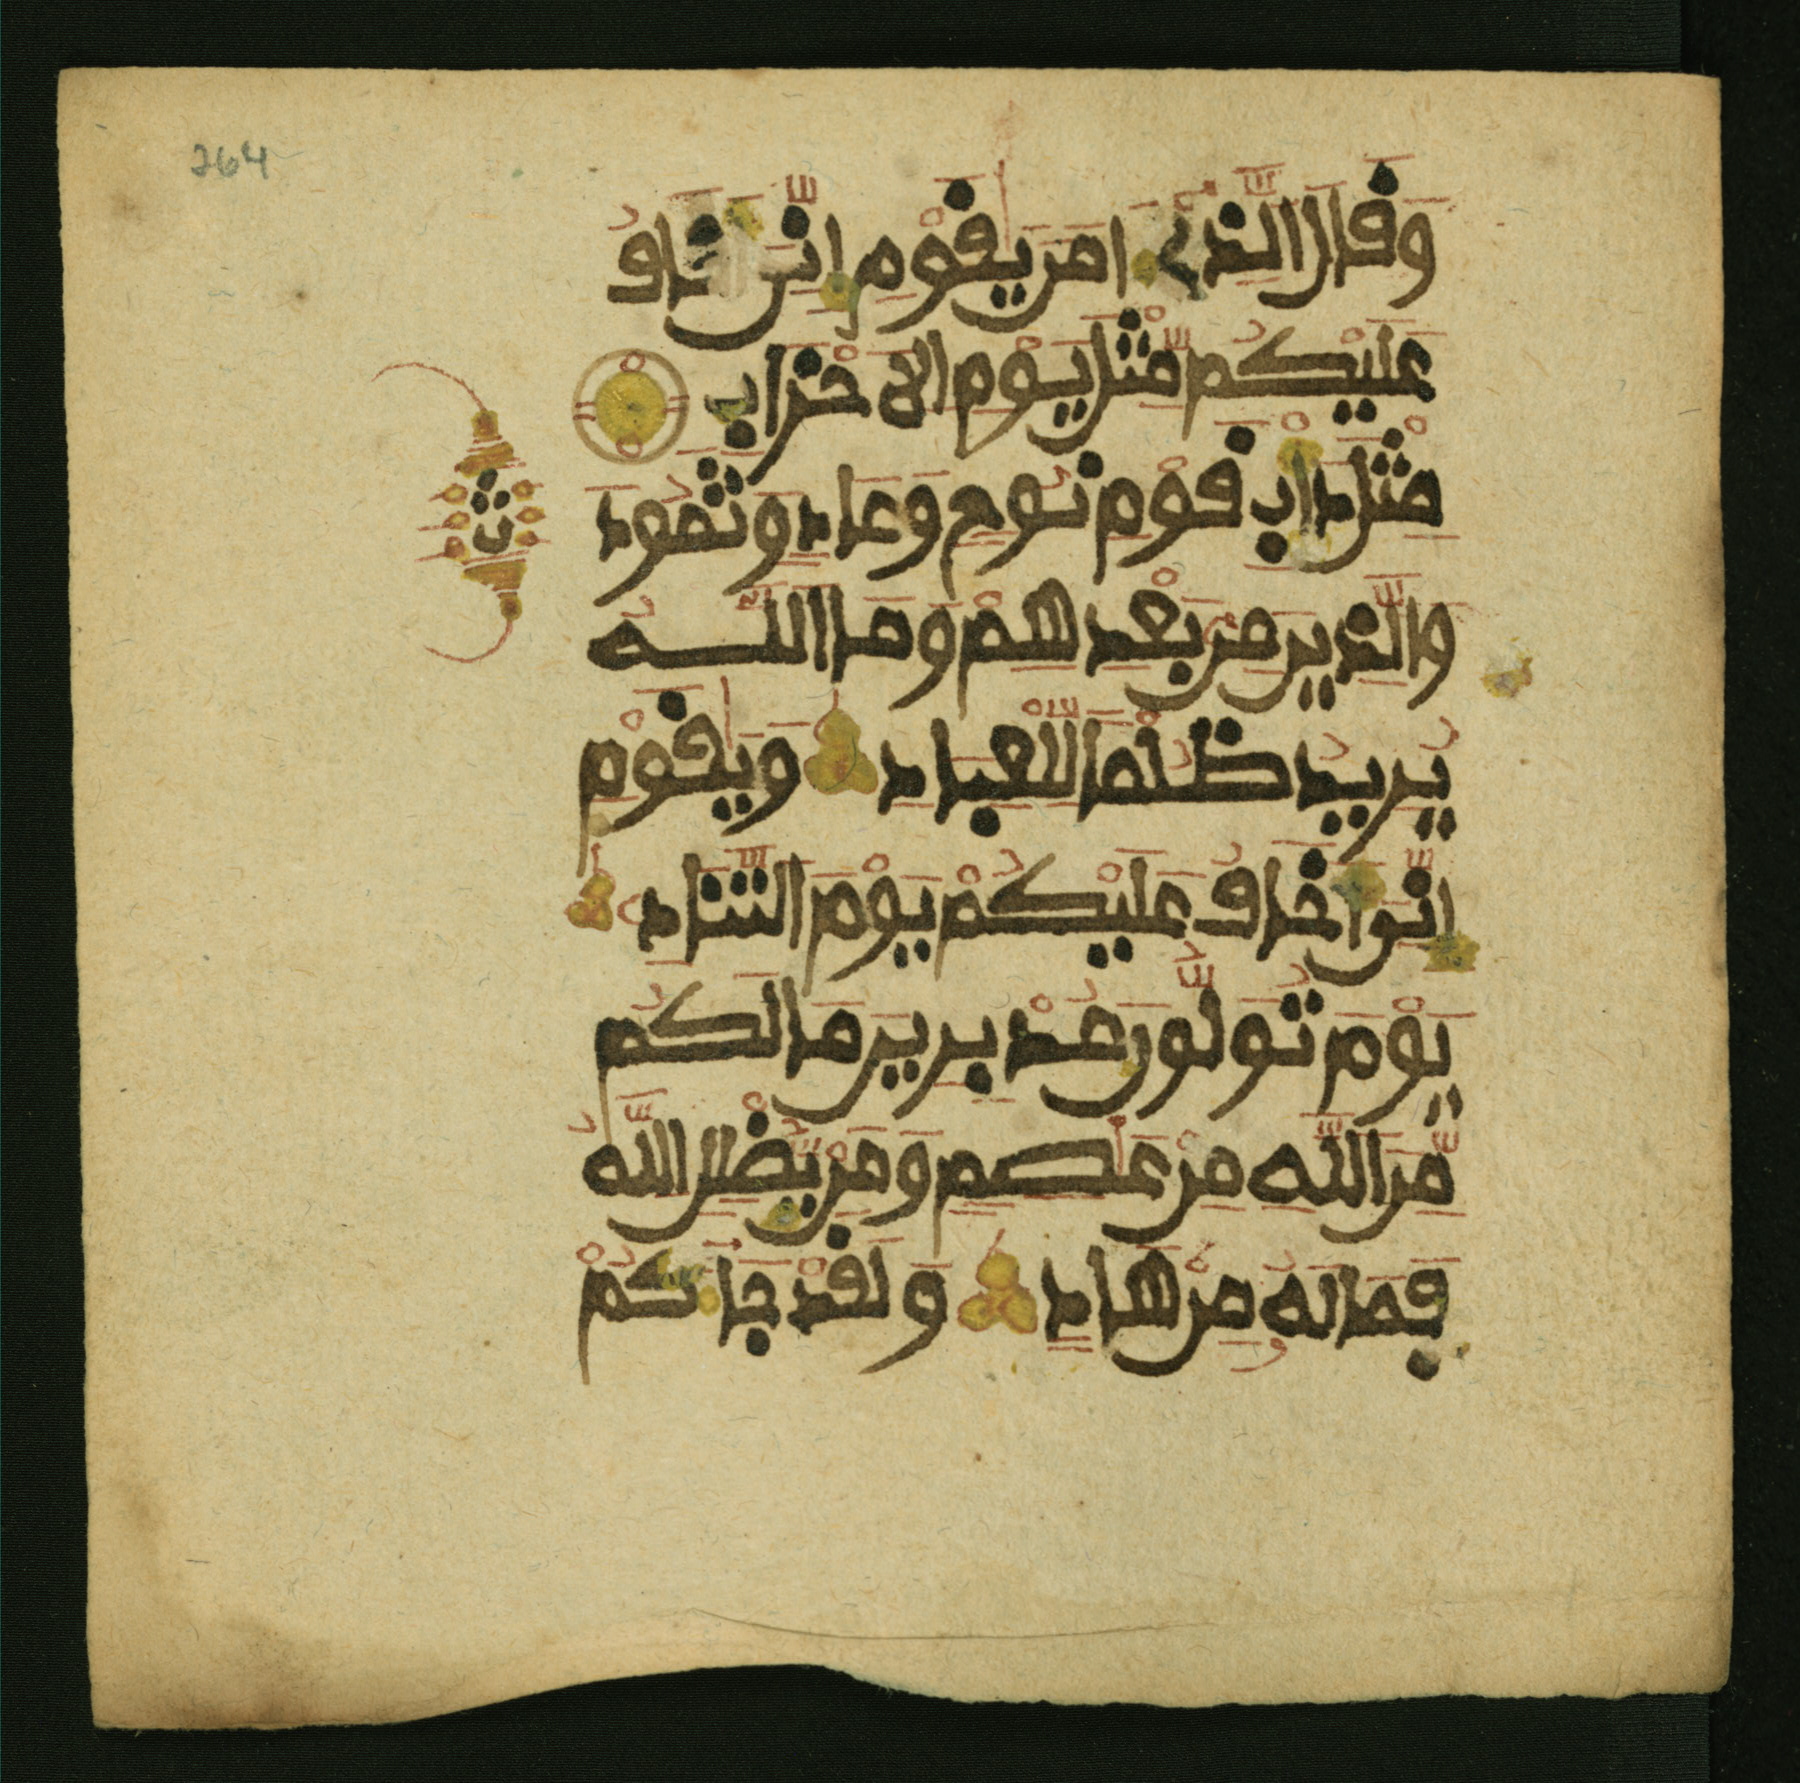 264
وقال الذي امن يقوم اني اخاف
عليكم مثل يوم الاحزاب
مثل داب قوم نوح وعاد وثمود
والذين من بعدهم وما الله
يريد ظلما للعباد ويقوم
اني اخاف عليكم يوم التناد
يوم تولون مدبرين ما لكم
من الله من عصم ومن يضلل الله
فما له من هاد ولقد جاكم